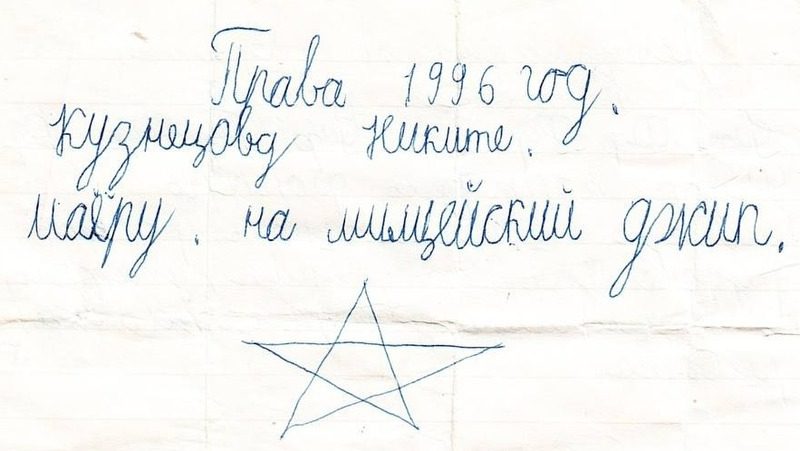 Права 1996 год.
Кузнецовд Никите.
маёру. на милцейский джип.